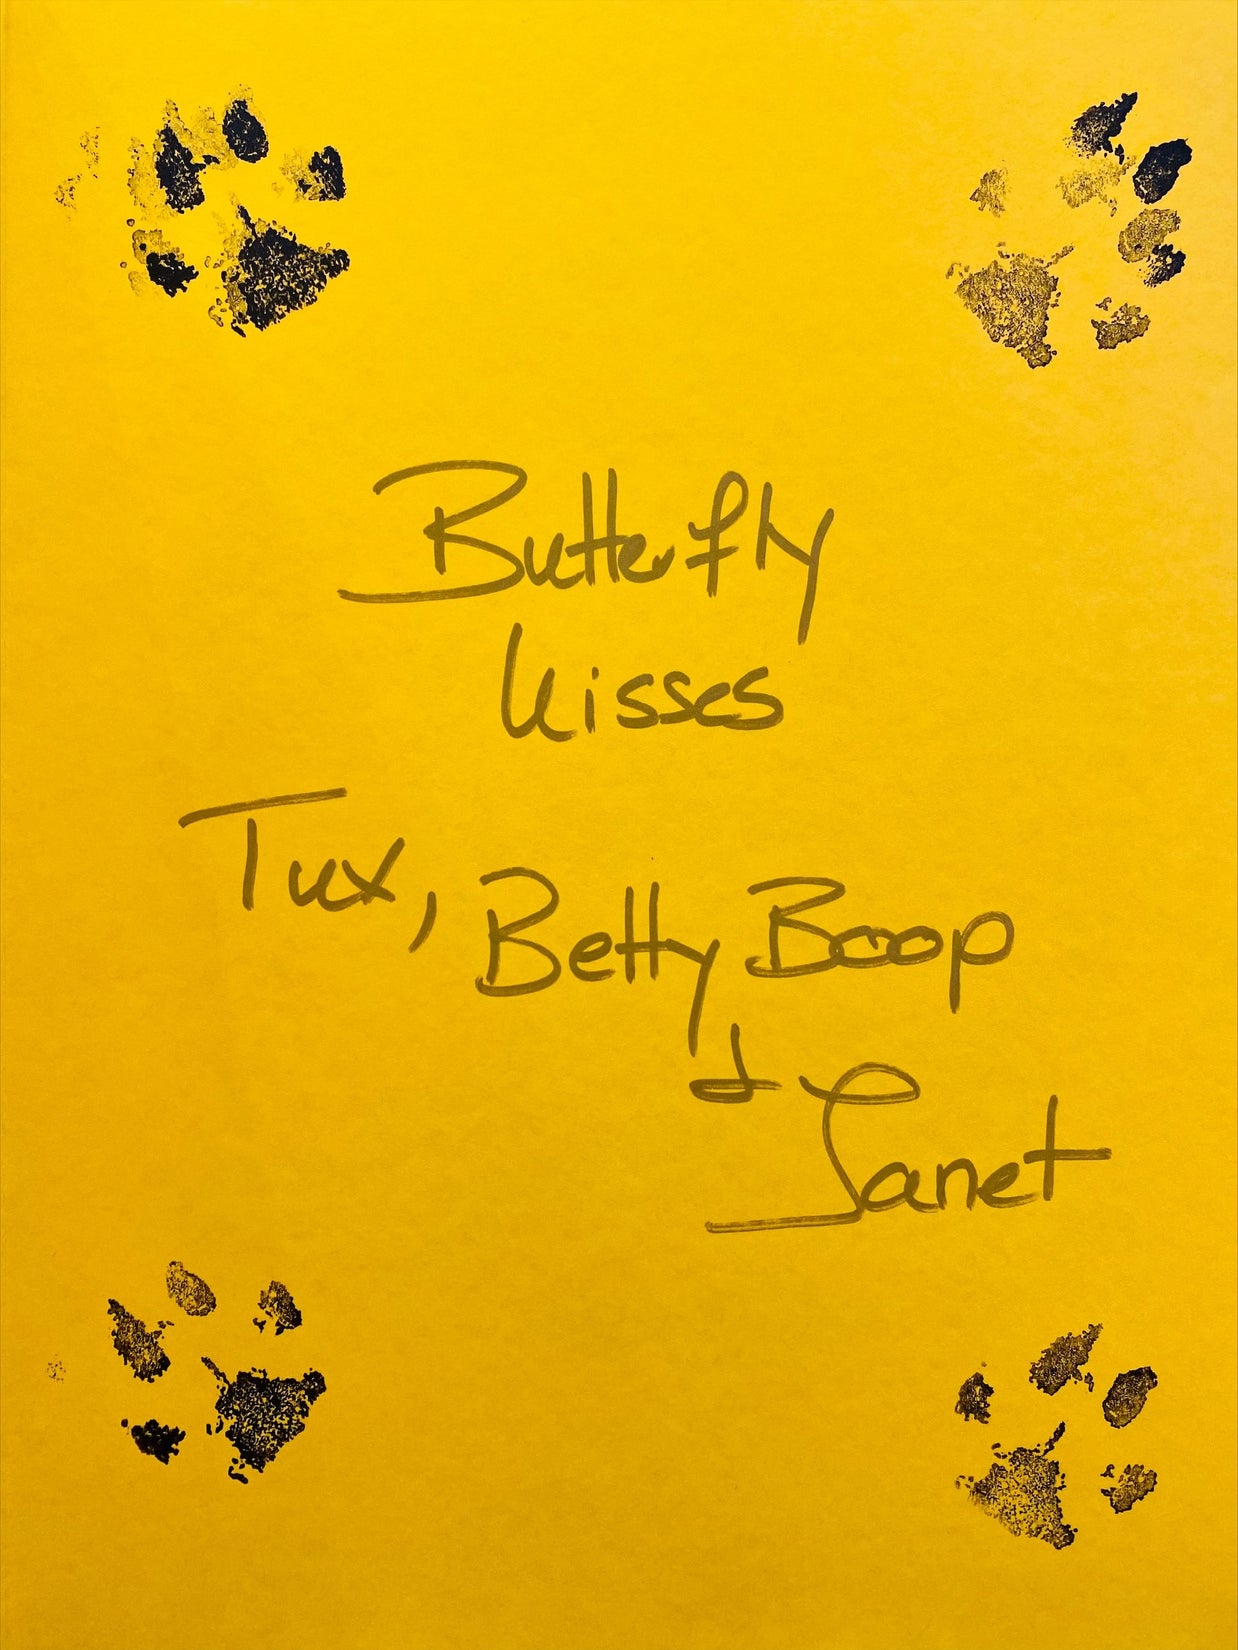 Butterfly
Kisses
Tux, Betty Boop
& Janet